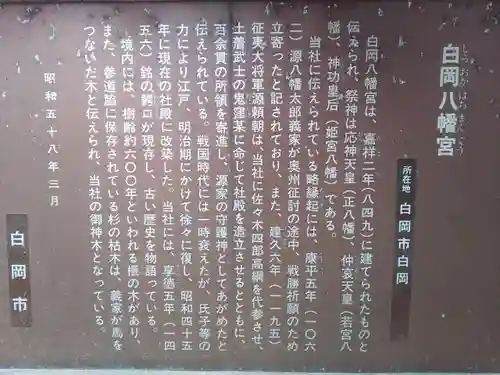 白岡八幡宮
しらおかはちまんぐう
所在地 白岡市白岡
白岡八幡宮は、嘉祥二年(八四九)に建てられたものと
伝えられ、祭神は応神天皇(正八幡)、仲哀天皇(若宮八
幡)、神功皇后(姫宮八幡)である。
当社に伝えられている略縁起には、康平五年(一〇六
二)源八幡太郎義家が奥州征討の途中、戦勝祈願のため
立寄ったと記されており、また、建久六年(一一九五)
征夷大将軍源頼朝は、当社に佐々木四郎高綱を代参させ、
土着武士の鬼窪某に命じて社殿を造立させるとともに、
百余貫の所領を寄進し、源家の守護神としてあがめたと
伝えられている。戦国時代には一時衰えたが、氏子等の
力により江戸、明治期にかけて徐々に復し、昭和四十五
年に現在の社殿に改築した。当社には、享徳五年(一四
五六)銘の鰐口が現存し、古い歴史を物語っている。
境内には、樹齢約六〇〇年といわれる榧の木があり、
また、参道脇に保存されている杉の枯木は、義家が馬を
つないだ木と伝えられ、当社の御神木となっている。
昭和五十八年三月
白岡市